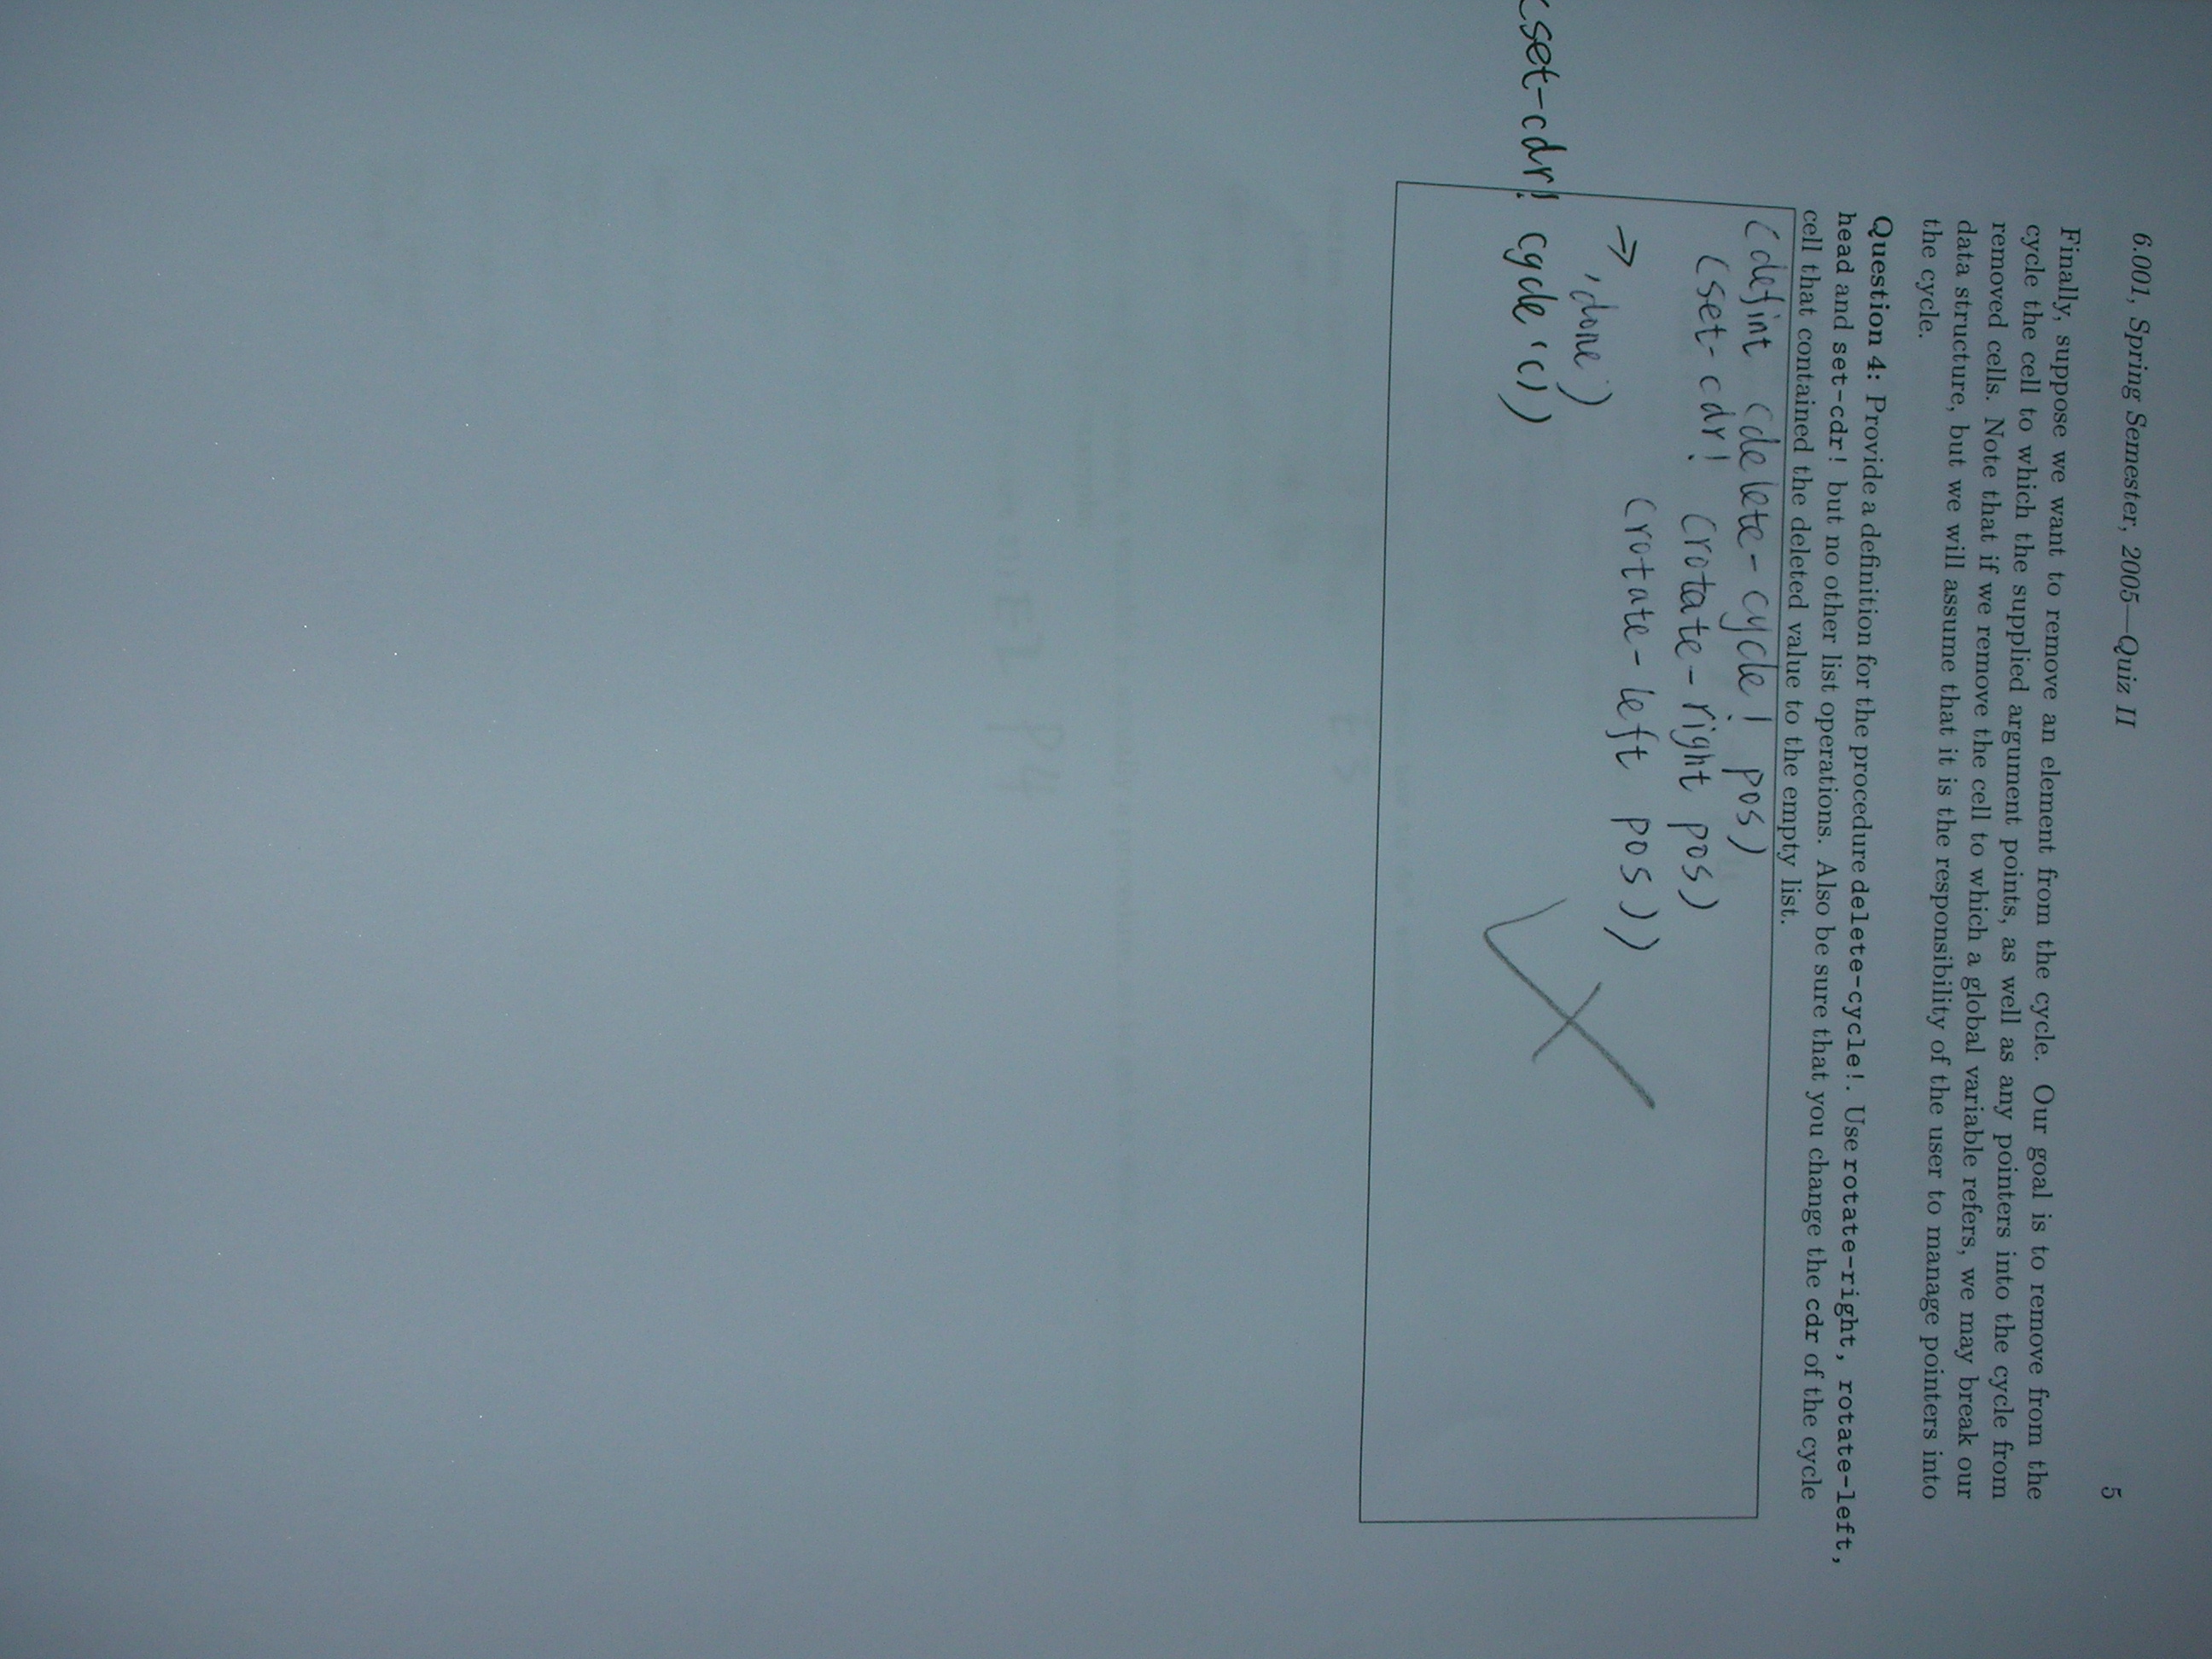 6.001, Spring Semester, 2005—Quiz II 5
Finally, suppose we want to remove an element from the cycle. Our goal is to remove from the
cycle the cell to which the supplied argument points, as well as any pointers into the cycle from
removed cells. Note that if we remove the cell to which a global variable refers, we may break our
data structure, but we will assume that it is the responsibility of the user to manage pointers into
the cycle.
Question 4: Provide a definition for the procedure delete-cycle!. Use rotate-right, rotate-left,
head and set-cdr! but no other list operations. Also be sure that you change the cdr of the cycle
cell that contained the deleted value to the empty list.
(defint (delete-cycle! pos)
(set-cdr! (rotate-right pos)
(rotate-left pos))
→
'done)
(set-cdr! cycle '())